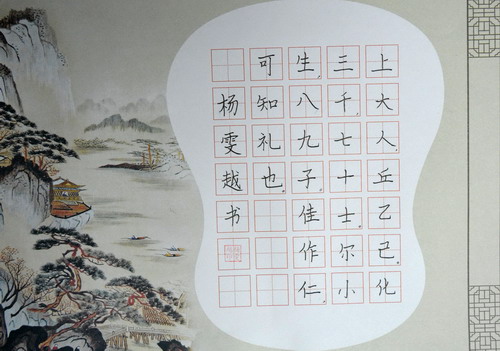 上大人丘乙己化
三千七十士尔小
生八九子佳作仁
可知礼也
杨雯越书